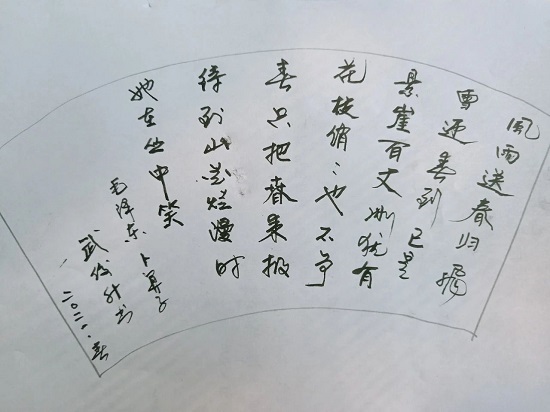 風雨送春归飛
雪迎春到已是
悬崖百丈冰犹有
花枝俏俏也不争
春只把春来报
待到山花烂漫时
她在丛中笑
毛泽东卜算子
武俊升书
二〇二一.春